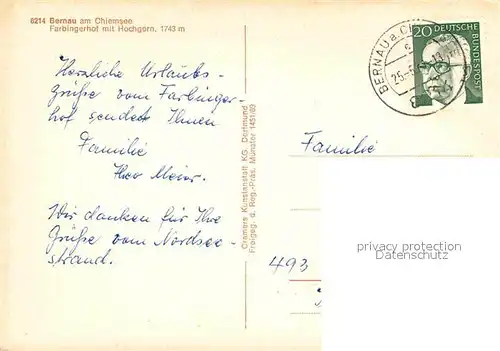 8214 Bernau am Chiemsee
Farbingerhof mit Hochgern, 1743 m
Herzliche Urlaubs-
grüße vom Farbinger-
hof sendet Ihnen
Familie
Meier.
Wir danken für Ihre
Grüße vom Nordsee-
strand.
Cramers Kunstanstalt KG, Dortmund
Freigeg. d. Reg.-Präs. Münster 1451/69
BERNAU a. C
25.-
20
DEUTSCHE
BUNDESPOST
Familie
493
privacy protection
Datenschutz